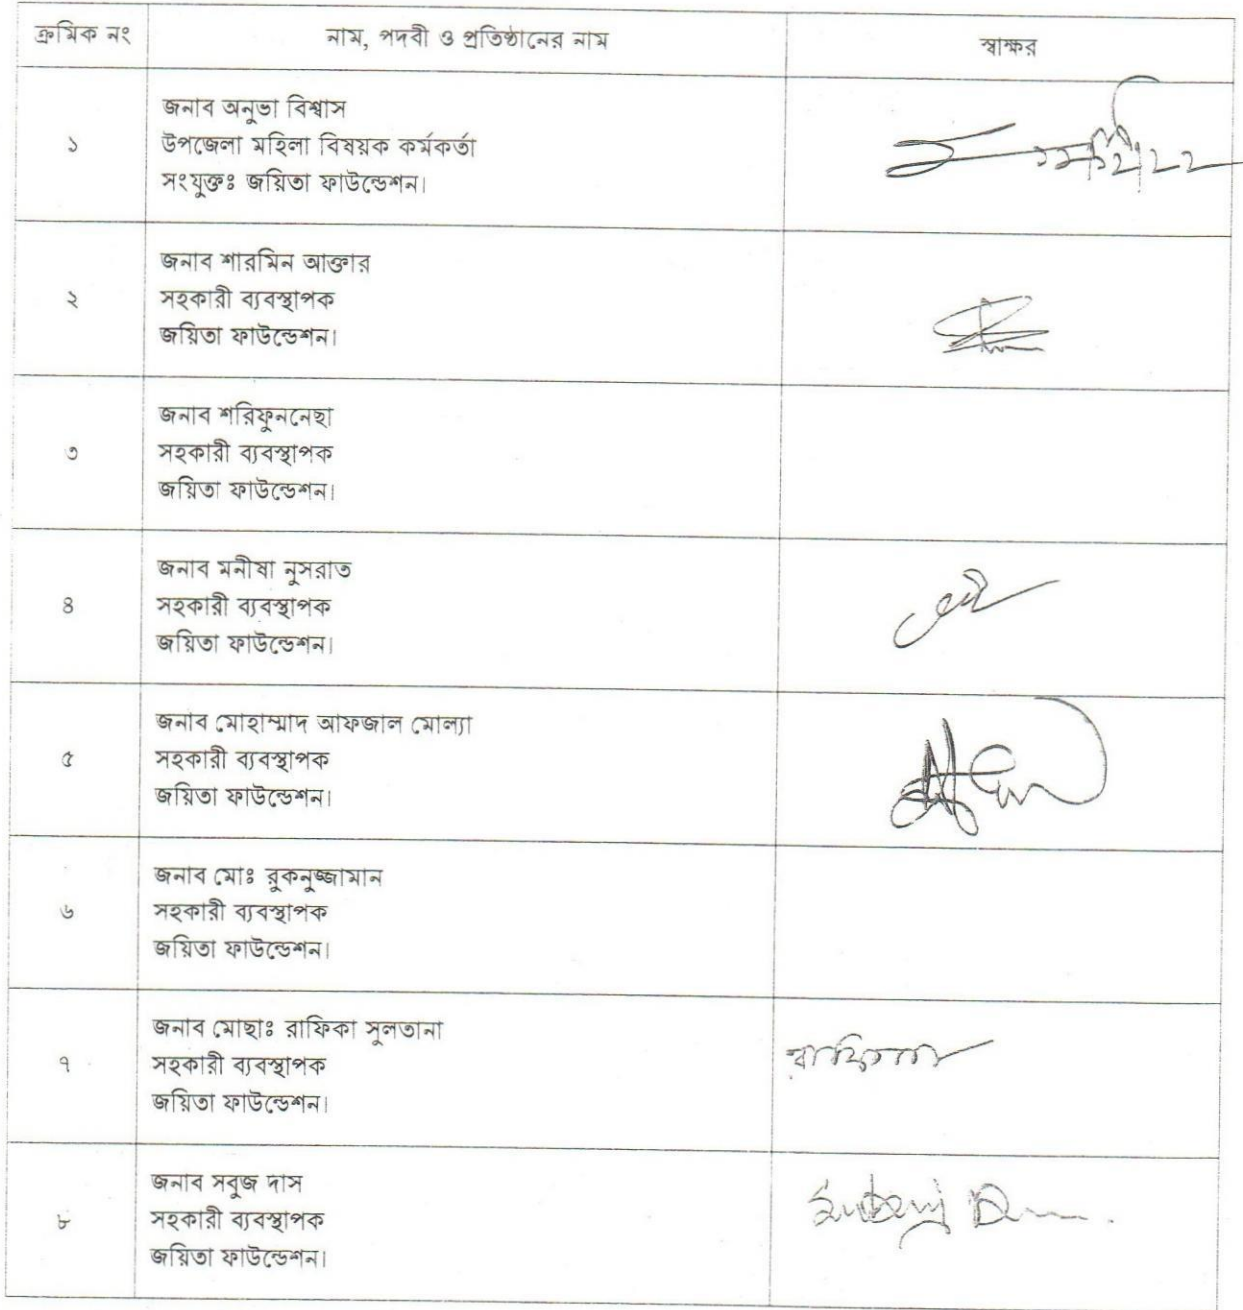 ক্রমিক নং
নাম, পদবী ও প্রতিষ্ঠানের নাম
স্বাক্ষর
১
জনাব অনুভা বিশ্বাস
উপজেলা মহিলা বিষয়ক কর্মকর্তা
সংযুক্তঃ জয়িতা ফাউন্ডেশন।
২
জনাব শারমিন আক্তার
সহকারী ব্যবস্থাপক
জয়িতা ফাউন্ডেশন।
৩
জনাব শরিফুননেছা
সহকারী ব্যবস্থাপক
জয়িতা ফাউন্ডেশন।
৪
জনাব মনীষা নুসরাত
সহকারী ব্যবস্থাপক
জয়িতা ফাউন্ডেশন।
৫
জনাব মোহাম্মাদ আফজাল মোল্যা
সহকারী ব্যবস্থাপক
জয়িতা ফাউন্ডেশন।
৬
জনাব মোঃ রুকনুজ্জামান
সহকারী ব্যবস্থাপক
জয়িতা ফাউন্ডেশন।
৭
জনাব মোছাঃ রাফিকা সুলতানা
সহকারী ব্যবস্থাপক
জয়িতা ফাউন্ডেশন।
রাফিকা
৮
জনাব সবুজ দাস
সহকারী ব্যবস্থাপক
জয়িতা ফাউন্ডেশন।